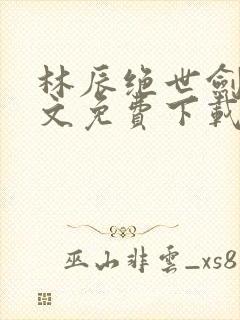 林辰绝世劍
文免費下載
巫山非雲_xs8